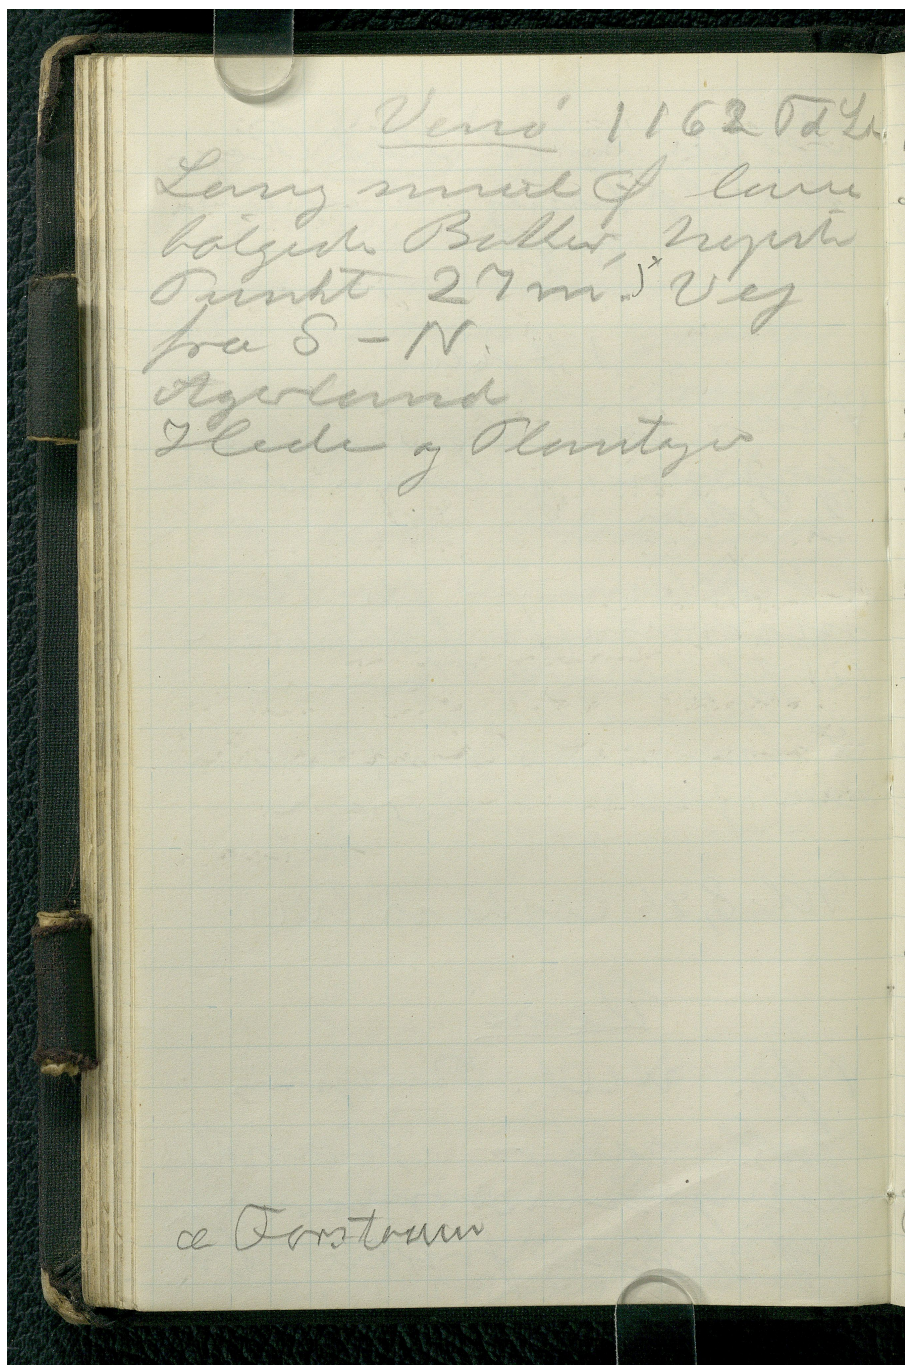 Venø 1162 Td L
Lang smal Ø lave
bølgede Bakker, højeste
Punkt 27 m.) Vej
fra S – N.
Agerland
Hede og Plantager
æ